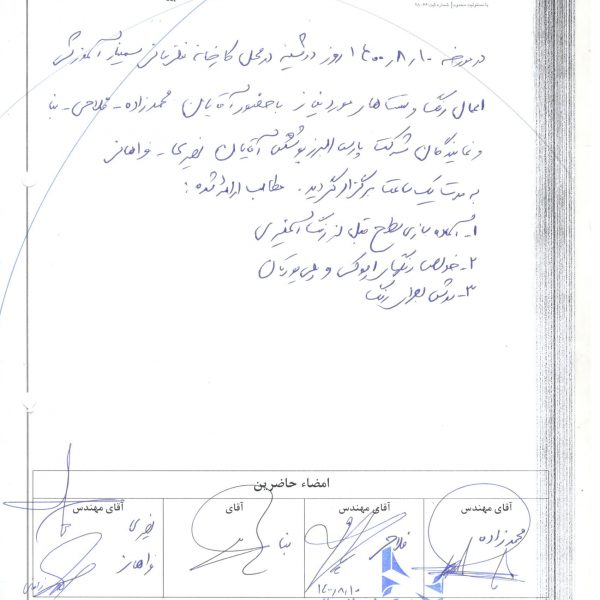 با مسئولیت محدود | شماره ثبت
در مورخه ۱۴۰۰٫۸٫۱۰ روز دوشنبه در محل کارخانه سمینار آموزشی
اعمال رنگ و تستهای مورد نیاز با حضور آقایان محمدزاده - فلاحی - بنا
و نمایندگان شرکت پارس البرز پوشش آقایان نصیری - فراهانی
به مدت یک ساعت برگزار گردید. مطالب ارائه شده:
۱- آماده سازی سطح قبل از رنگ آمیزی
۲- خواص رنگهای اپوکسی و پلی یورتان
۳- روش اجرای رنگ
امضاء حاضرین
آقای مهندس
محمدزاده
آقای مهندس
فلاحی
۱۴۰۰٫۸٫۱۰
آقای
بنا
آقای مهندس
نصیری
فراهانی